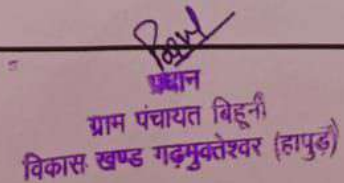 प्रधान
ग्राम पंचायत बिहूनी
विकास खण्ड गढ़मुक्तेश्वर (हापुड़)